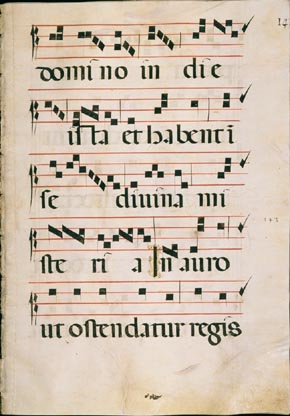 domi no in di e
is ta et habent i
se divina mi
ste ri a In auro
ut ostendatur regis